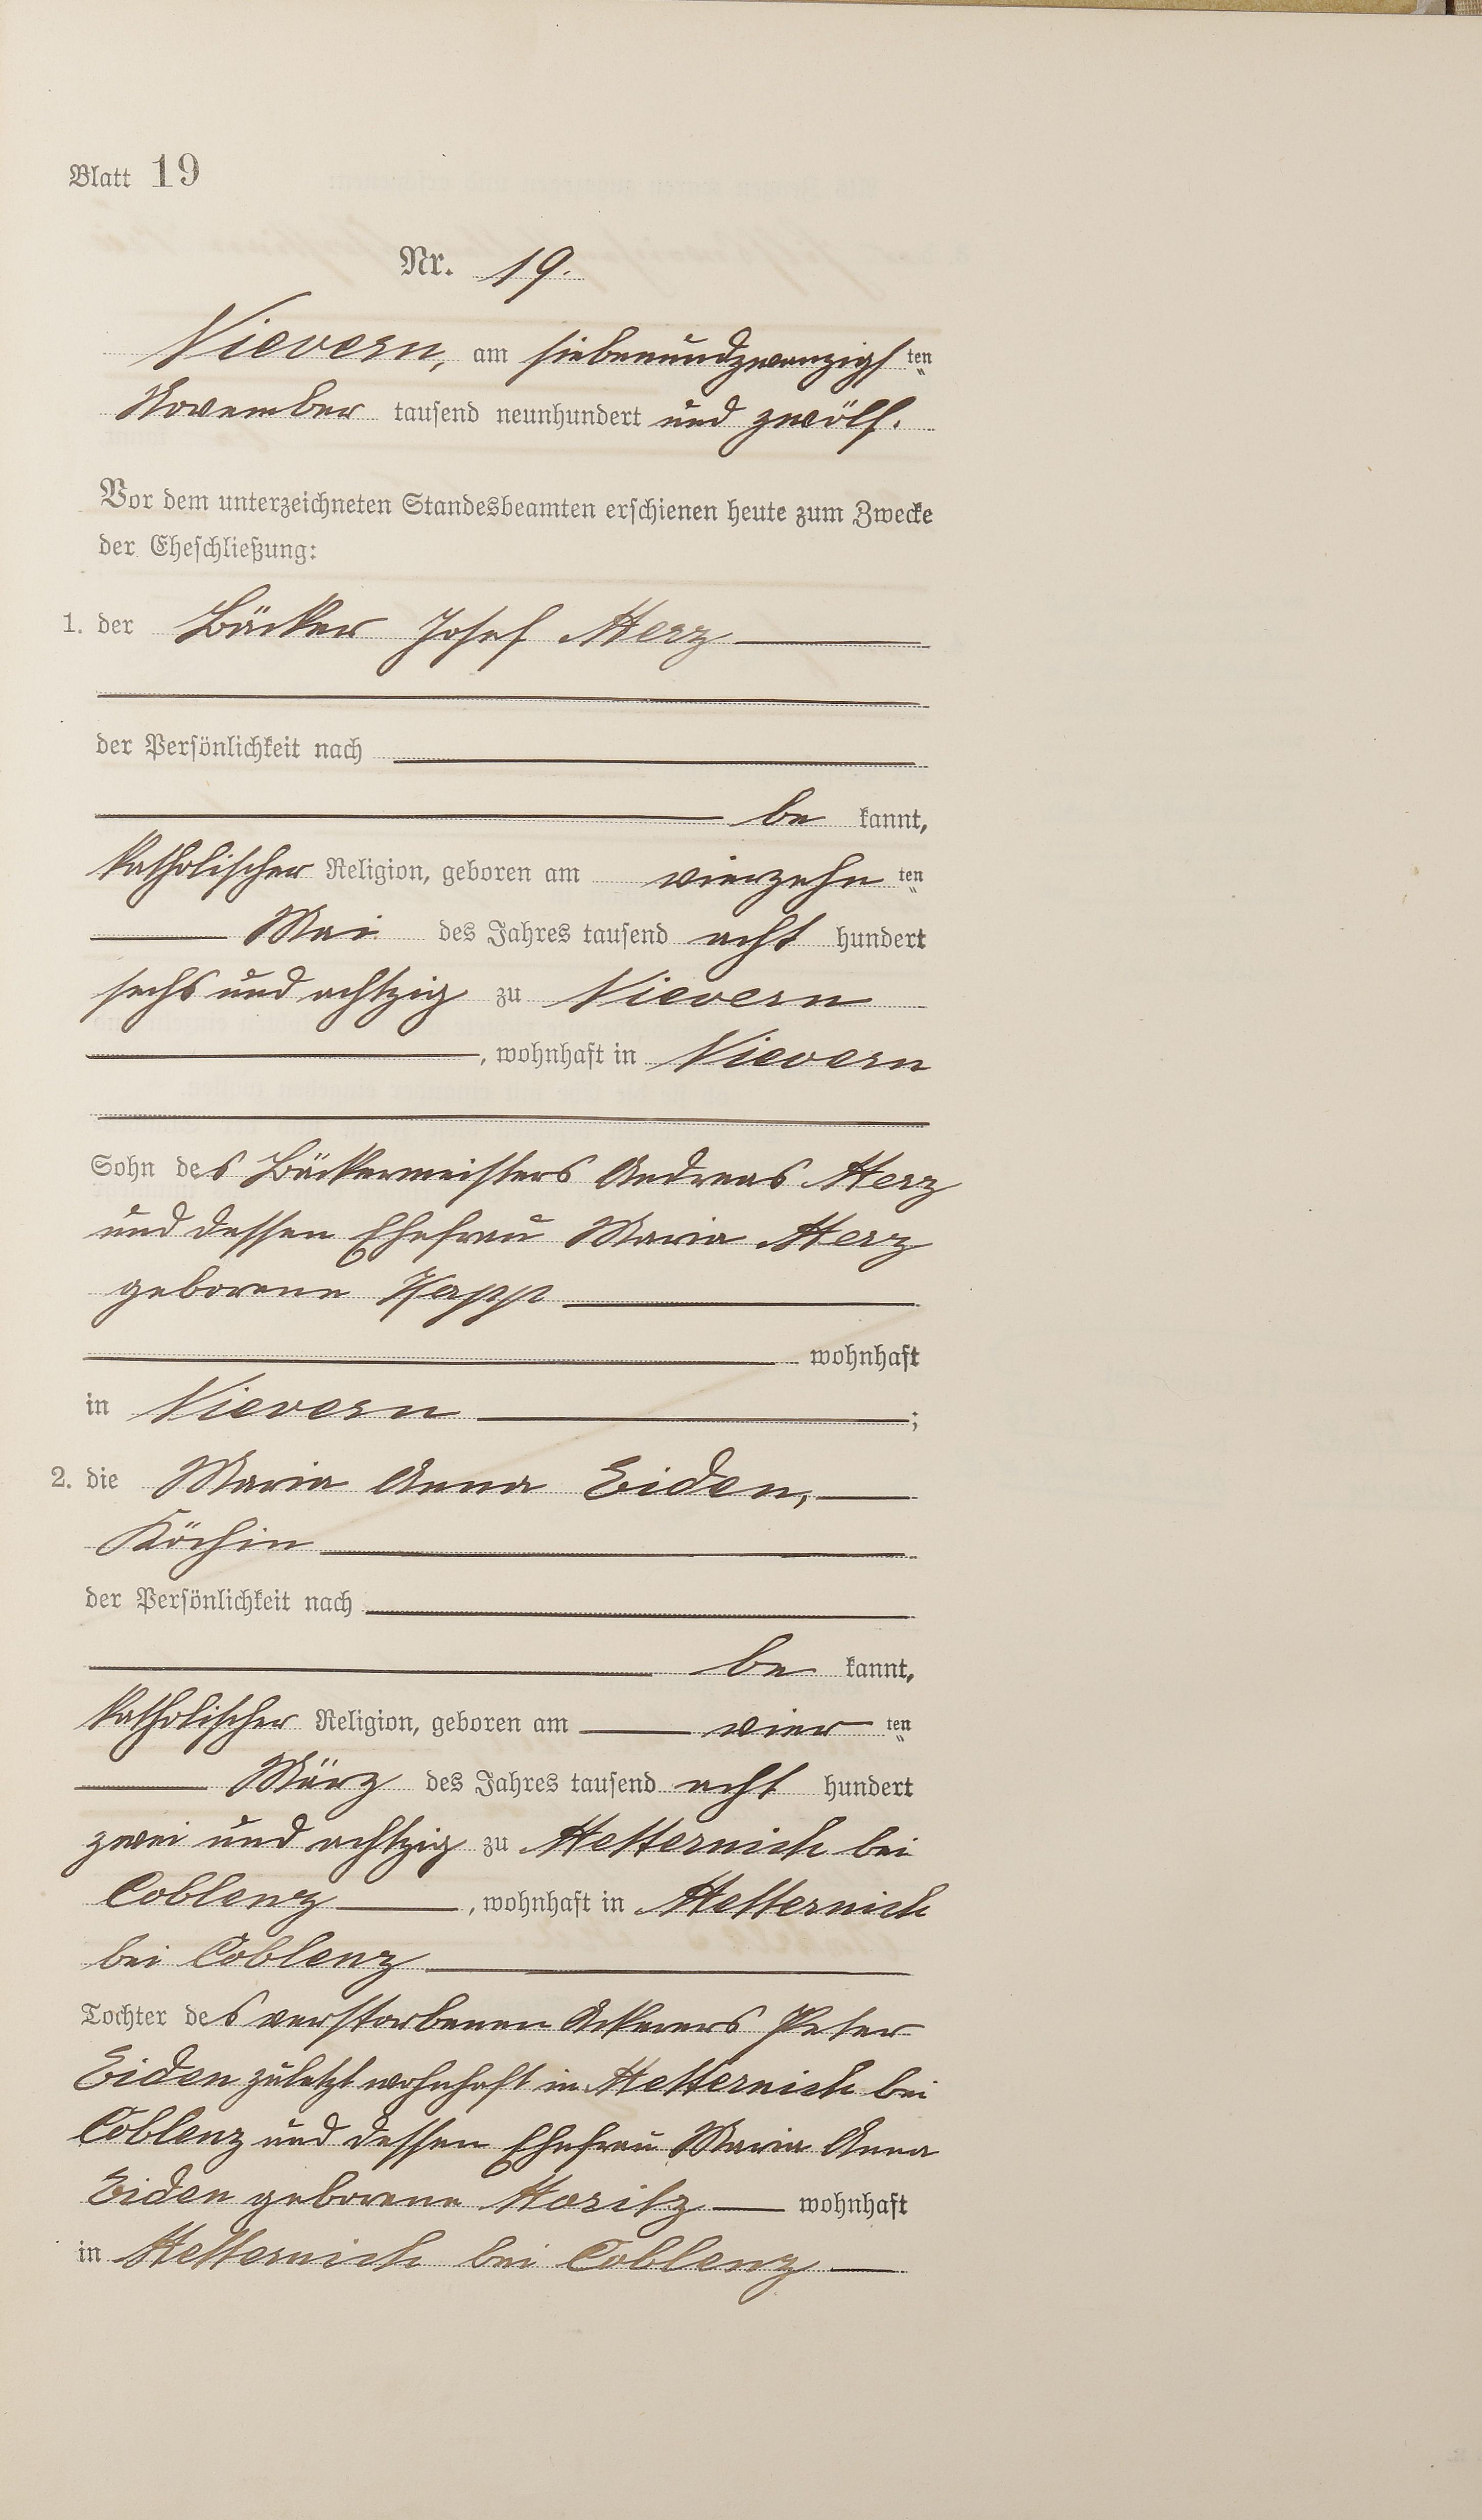 Blatt 19
Nr. 19.
Nievern, am siebenundzwanzigs ten
November tausend neunhundert und zwölf.
Vor dem unterzeichneten Standesbeamten erschienen heute zum Zwecke
der Eheschließung:
1. der Bäcker Josef Merz
der Persönlichkeit nach
be kannt,
katholischer Religion, geboren am vierzehn ten
Mai des Jahres tausend acht hundert
sechs und achtzig zu Nievern
, wohnhaft in Nievern
Sohn des Bäckermeisters Andreas Merz
und dessen Ehefrau Maria Merz
geborene Kapp
wohnhaft
in Nievern ;
2. die Maria Anna Eiden,
Köchin
der Persönlichkeit nach
be kannt,
katholischer Religion, geboren am vier ten
März des Jahres tausend acht hundert
zwei und achtzig zu Metternich bei
Coblenz , wohnhaft in Metternich
bei Coblenz
Tochter des verstorbenen Ackerers Peter
Eiden zuletzt wohnhaft in Metternich bei
Coblenz und dessen Ehefrau Maria Anna
Eiden geborene Moritz wohnhaft
in Metternich bei Coblenz